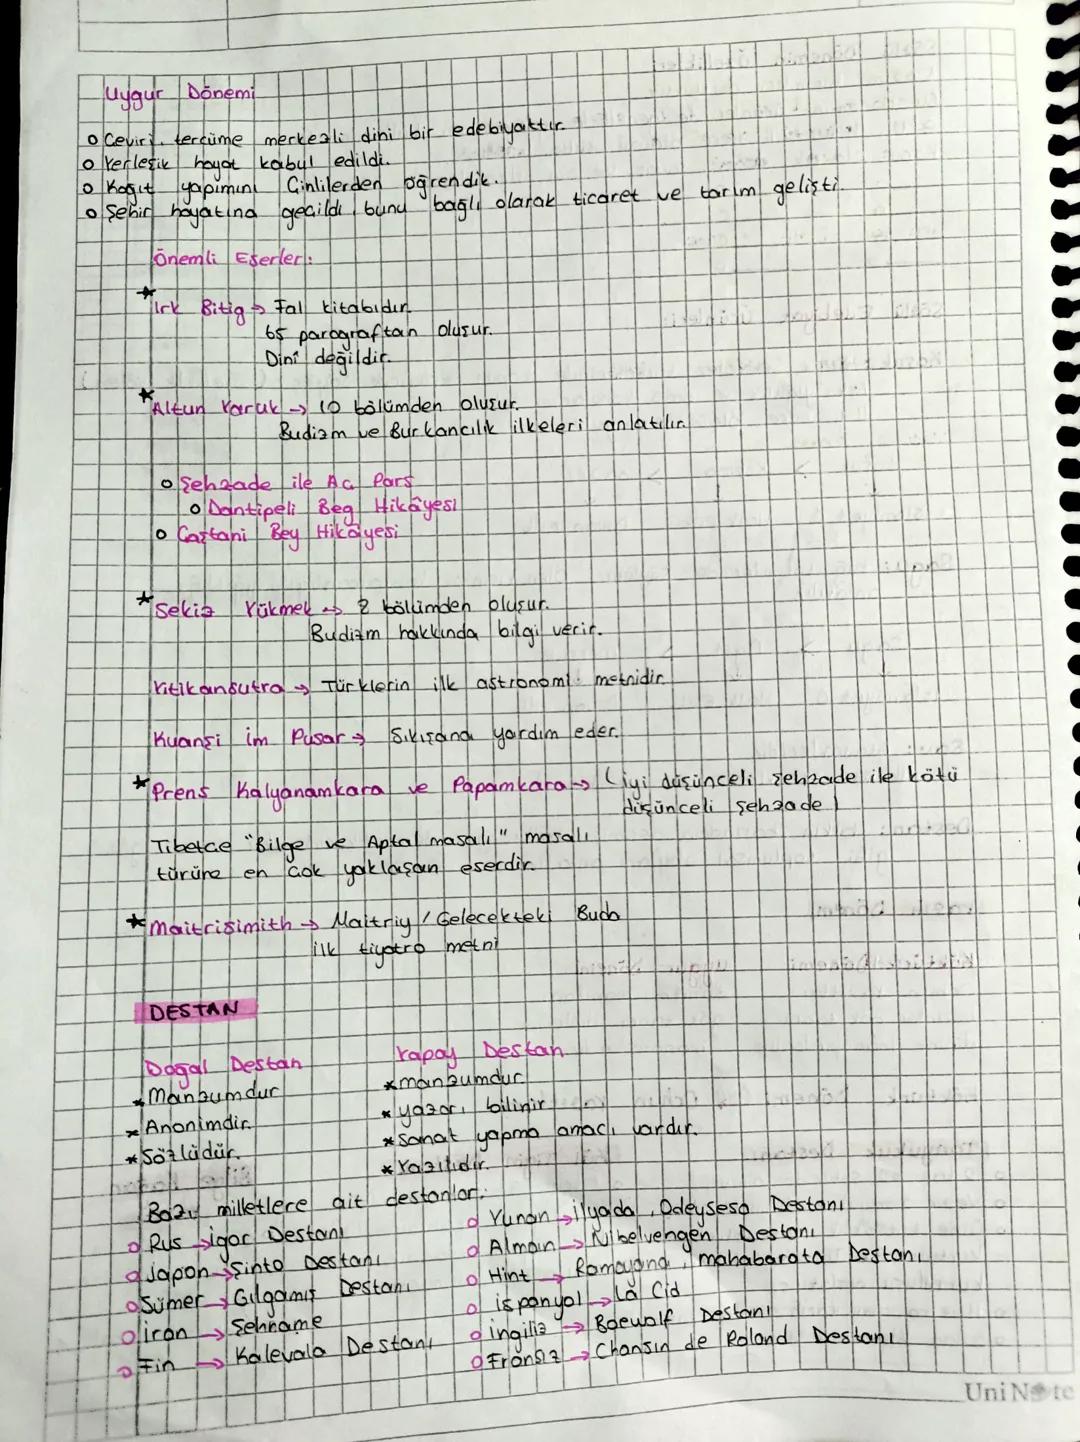 Uygur Dönemi
o Çeviri, tercüme merkezli dini bir edebiyattır.
o Yerleşik hayat kabul edildi.
o Kağıt yapımını Çinlilerden öğrendik.
o Şehir hayatına geçildi, bunu bağlı olarak ticaret ve tarım gelişti.
Önemli Eserler:
* Irk Bitig → Fal kitabıdır.
65 paragraftan oluşur.
Dinî değildir.
* Altun Yaruk → 10 bölümden oluşur.
Budizm ve Burkancılık ilkeleri anlatılır.
o Şehzade ile Aç Pars
o Dantipeli Beg Hikâyesi
o Çaştani Bey Hikâyesi
* Sekiz Yükmek → 2 bölümden oluşur.
Budizm hakkında bilgi verir.
Yitikansutra → Türklerin ilk astronomi metnidir.
Kuanşi im Pusar → Sıkışana yardım eder.
* Prens Kalyanamkara ve Papamkara → (iyi düşünceli şehzade ile kötü
düşünceli şehzade)
Tibetçe "Bilge ve Aptal masalı" masalı
türüne en çok yaklaşan eserdir.
* Maitrisimith → Maitriy / Gelecekteki Buda
ilk tiyatro metni
DESTAN
Doğal Destan Yapay Destan
* Manzumdur * manzumdur.
* Anonimdir. * yazarı bilinir.
* Sözlüdür. * Sanat yapma amacı vardır.
* Yazılıdır.
Bazı milletlere ait destanlar:
o Rus → igor Destanı o Yunan → ilyada, Odeysesa Destanı
o Japon → Şinto Destanı o Alman → Nibelvengen Destanı
o Sümer → Gılgamış Destanı o Hint → Ramayana, mahabarata Destanı
o iran → Şehname o ispanyol → La Cid
o Fin → Kalevala Destanı o ingiliz → Boewolf Destanı
o Fransız → Chansın de Roland Destanı
UniNote